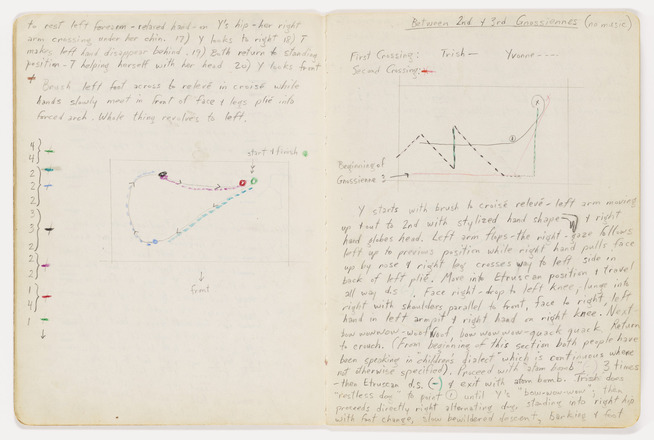 to rest left forearm-relaxed hand-on Y's hip-her right
arm crossing under her chin. 17) Y looks to right 18) T
makes left hand disappear behind. 19) Both return to standing
position-T helping herself with her head 20) Y looks front
Brush left foot across to relevé in croisé while
hands slowly meet in front of face & legs plié into
forced arch. Whole thing revolves to left.
start & finish
4
4
2
2
2
3
3
2
2
2
1
4
1
front
Between 2nd & 3rd Gnossiennes (no music)
First Crossing: Trish— Yvonne----
Second Crossing:
Y
①
Beginning of
Gnossienne 3
Y starts with brush to croisé relevé-left arm moving
up & out to 2nd with stylized hand shape & right
hand probes head. Left arm flips-the right-gaze follows
left up to previous position while right hand pulls face
up by nose & right leg crosses way to left side in
back of left plié. Move into Etruscan position & travel
all way d.s. Face right-drop to left knee, plunge into
right with shoulders parallel to front, face to right, left
hand in left armpit & right hand on right knee. Next-
bow wowwow-woof woof bow wow wow-quack quack. Return
to crouch. (From beginning of this section both people have
been speaking in "children's dialect" which is continuous where
not otherwise specified). Proceed with "atom bomb" 3 times
-then Etruscan d.s. & exit with atom bomb. Trish does
"restless dog" to point ① until Y's "bow-wow-wow", then
proceeds directly right alternating dog, standing into right hip
with foot change, slow bewildered descent, barking & front